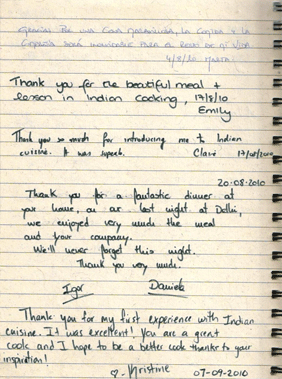 Gracias por una cena maravillosa, la cocina y la
compañía será inolvidable para el resto de mi vida
4/8/10
Thank you for the beautiful meal +
lesson in Indian cooking, 17/8/10
Emily
Thank you so much for introducing me to Indian
cuisine. It was superb. Claire 17/08/2010
20-08-2010
Thank you for a fantastic dinner at
your home, on our last night at Delhi,
we enjoyed very much the meal
and your company.
We'll never forget this night.
Thank you very much.
Igor Daniela
Thank you for my first experience with Indian
cuisine. It was excellent! You are a great
cook and I hope to be a better cook thanks to your
inspiration!
♡-Kristine 07-09-2010